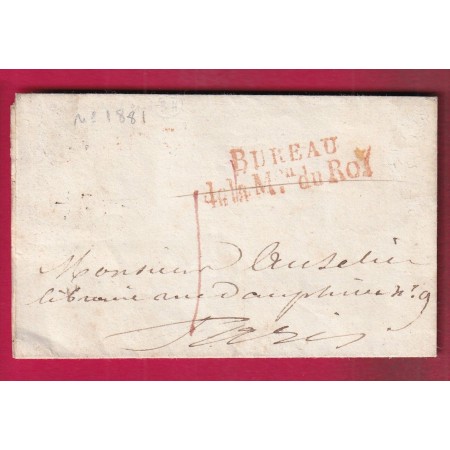 N° 1881
BUREAU
de la M.on du Roi
Monsieur Anselin
libraire rue Dauphine n.° 9
Paris